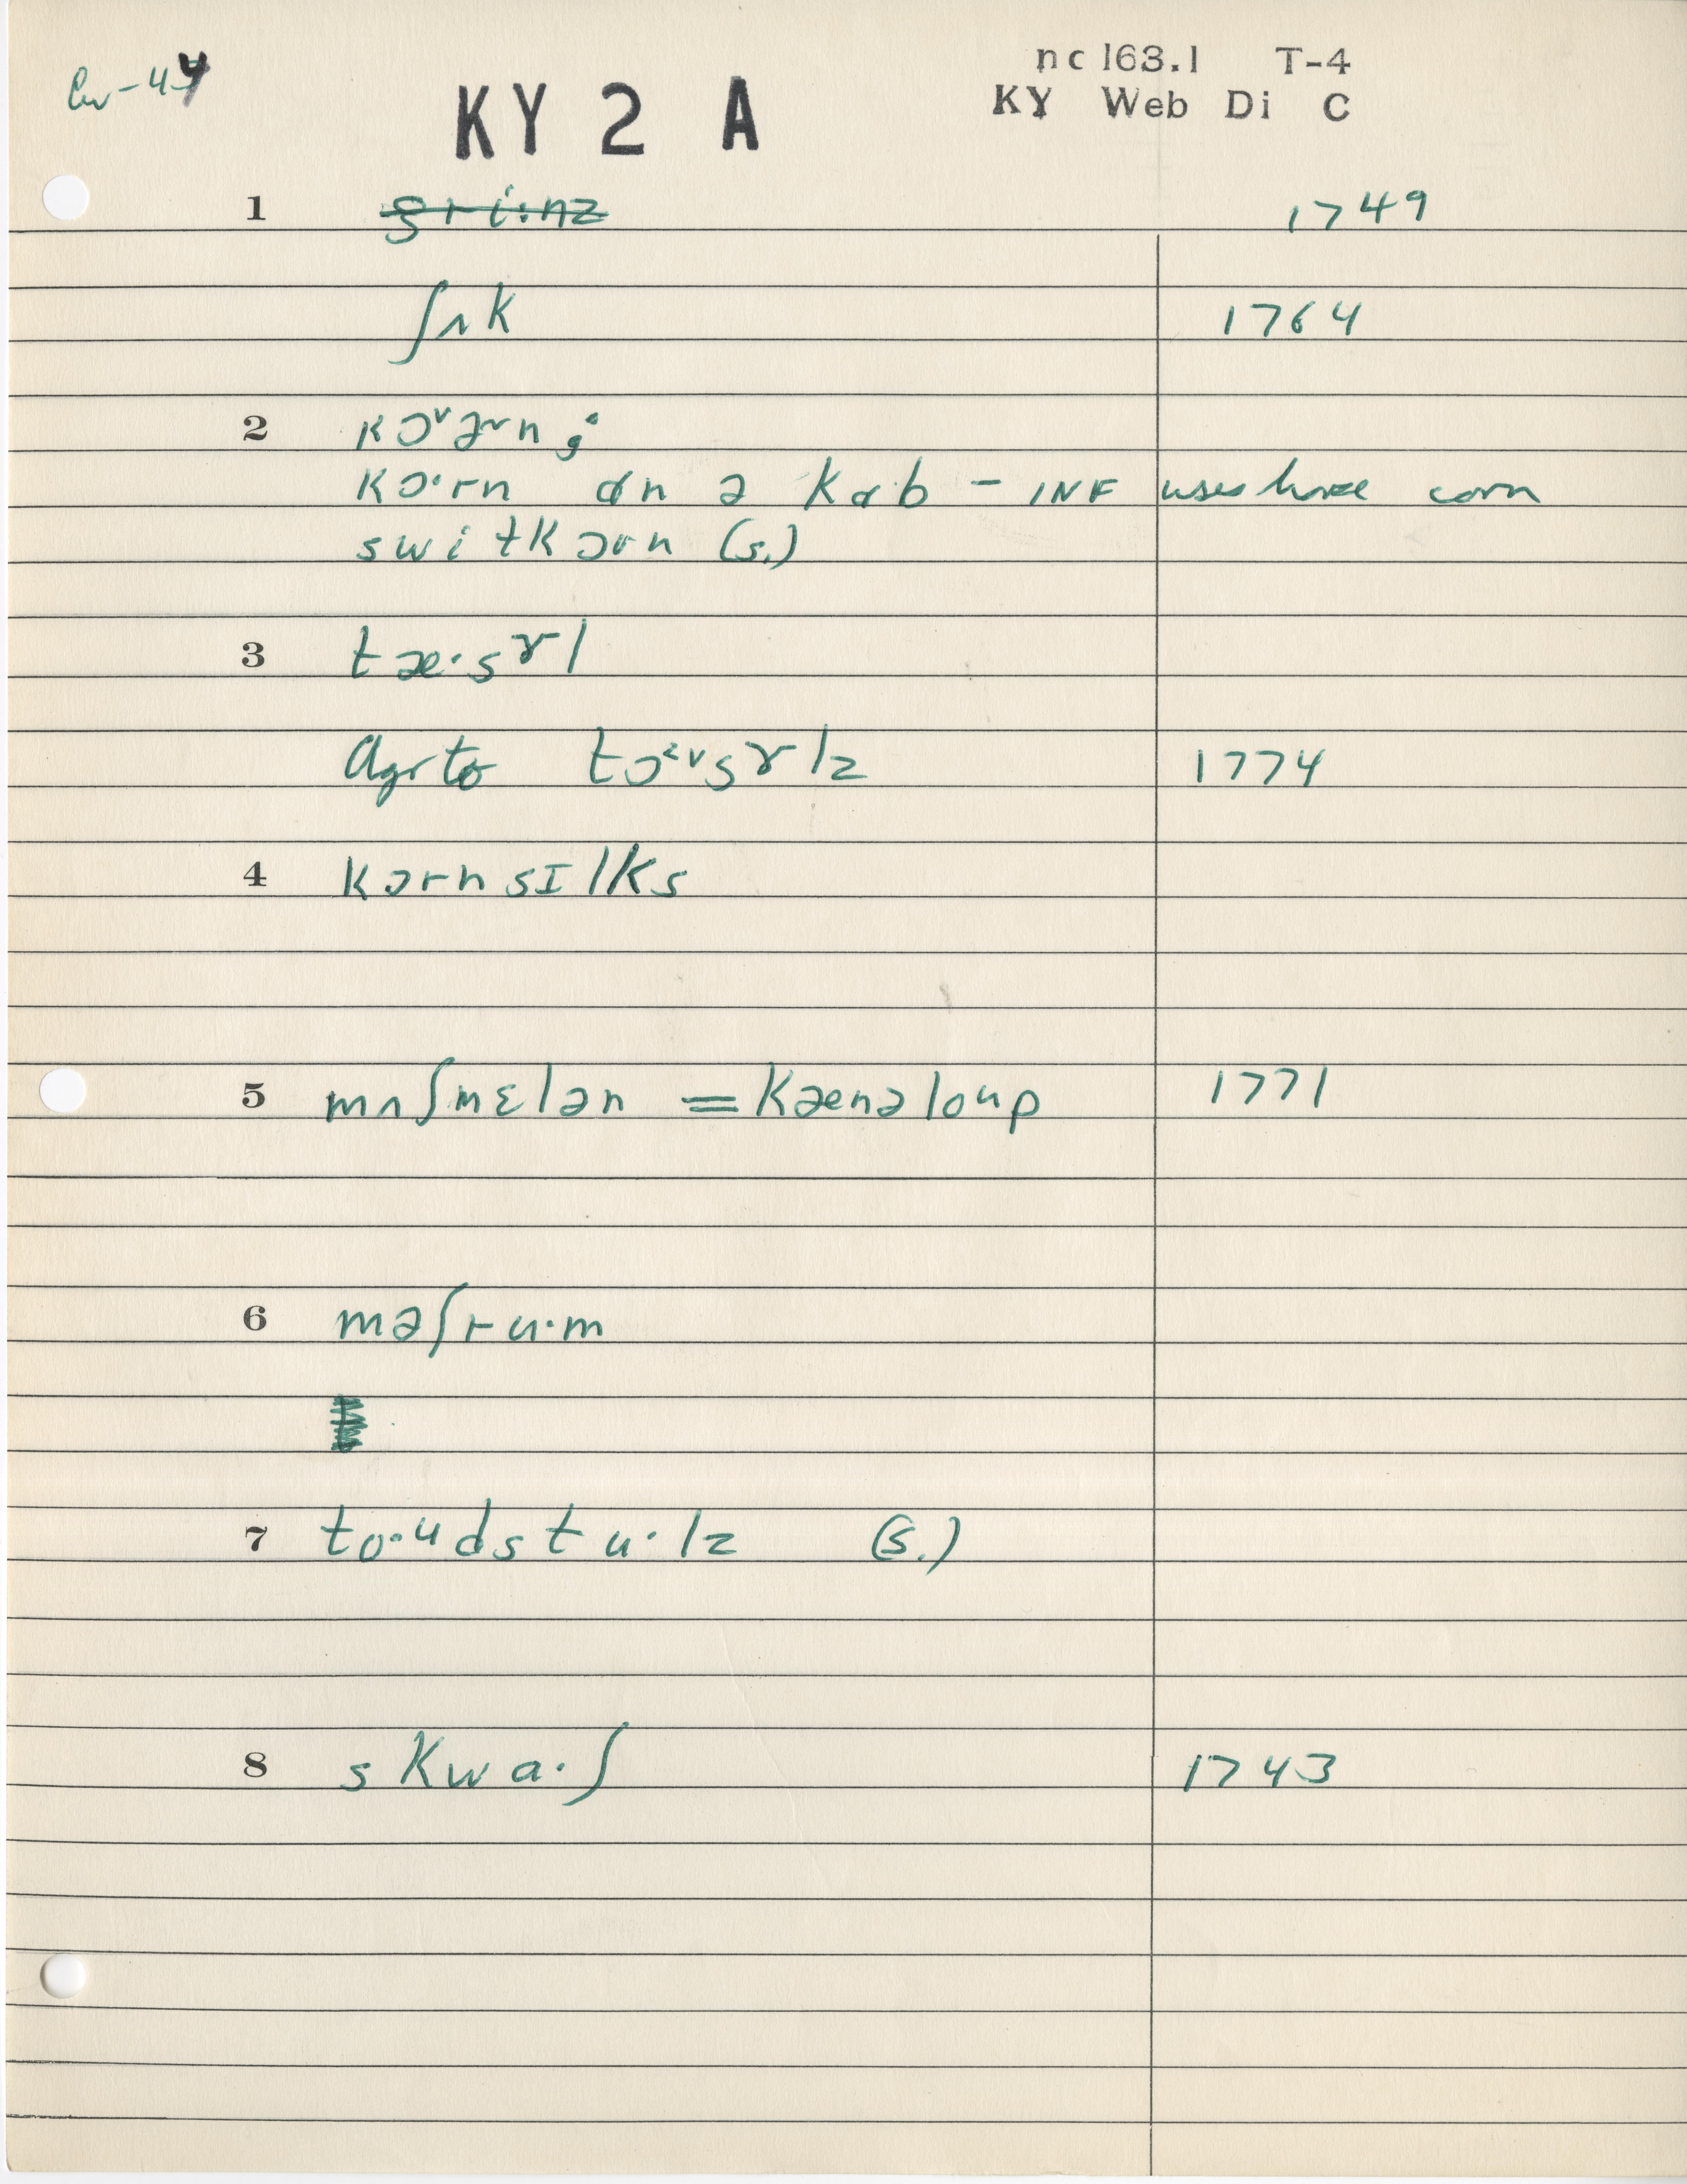 nc 163.1 T-4
KY 2 A
KY Web Di C
1 gri:nz 1749
ʃʌk 1764
2 kɔᵛɚn ;
kɔ·rn ɑn ə kɑb – INF uses horse corn
switkɔrn (s.)
3 tæ·sɤl
tɔ^sɤlz 1774
4 kɔrnsɪlks
5 mʌʃmɛlən = kænəloup 1771
6 məʃru·m
7 to·udstu·lz (s.)
8 skwa·ʃ 1743